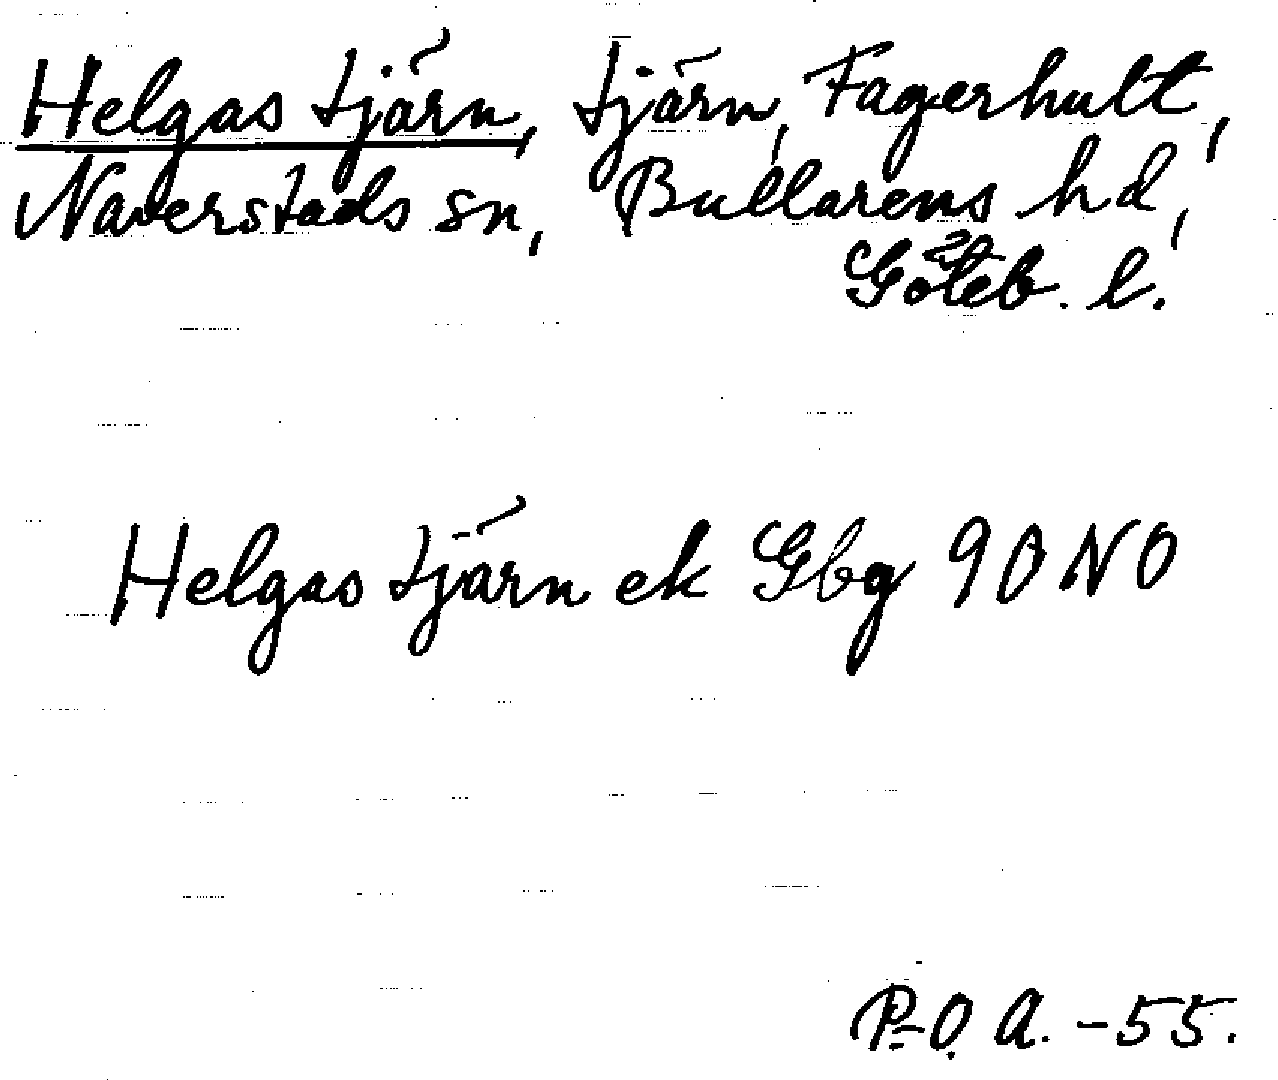 Helgas tjärn, tjärn, Fagerhult,
Naverstads sn, Bullarens hd,
Göteb. l.
Helgas tjärn ek Gbg 90 NO
P.O. A. -55.